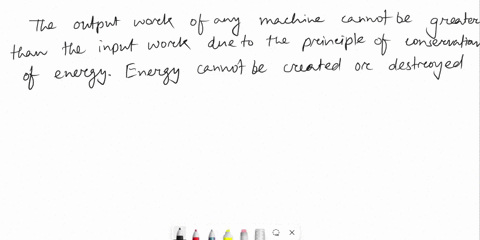 The output work of any machine cannot be greater
than the input work due to the principle of conservation
of energy. Energy cannot be created or destroyed